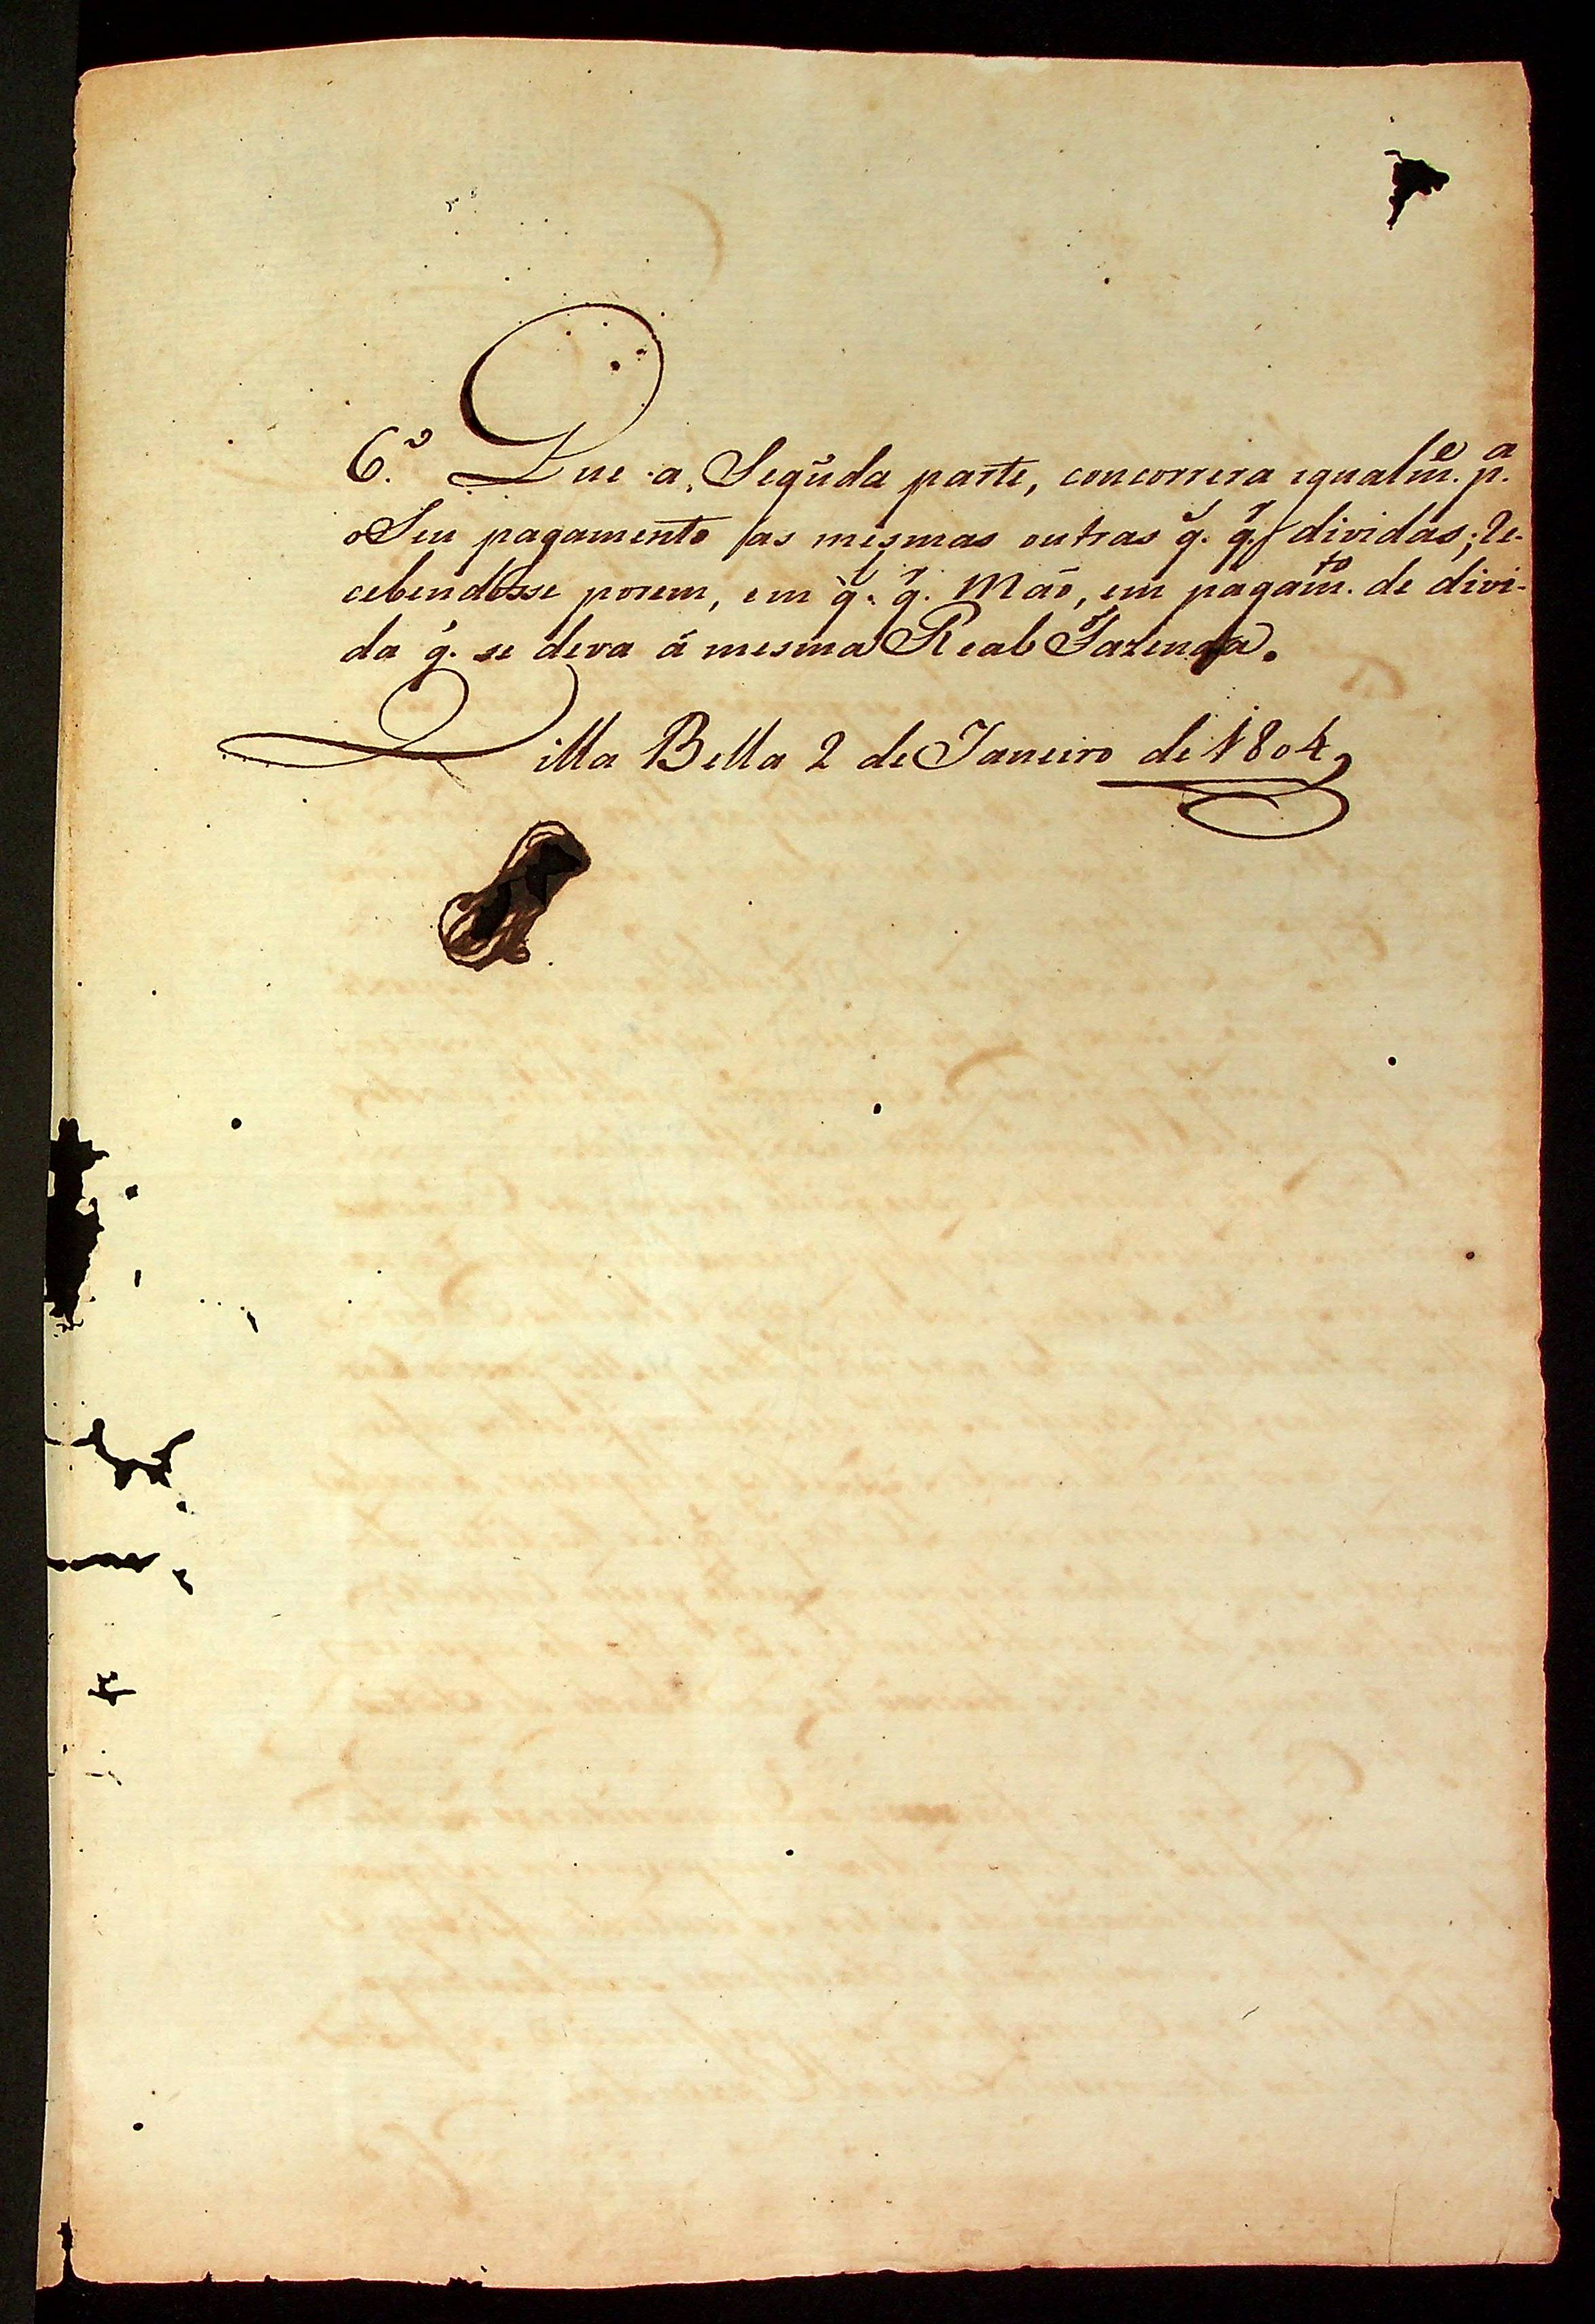 6.º Que a Segũda parte, concorrera igualm̃.e p.a
o Seu pagamento as mesmas outras q. q.r dividas; Re-
cebendosse porem, em q. q.r Mão, em pagam̃.to de divi-
da q̃. se deva á mesma Real Fazenda.
Villa Bella 2 de Janeiro de 1804